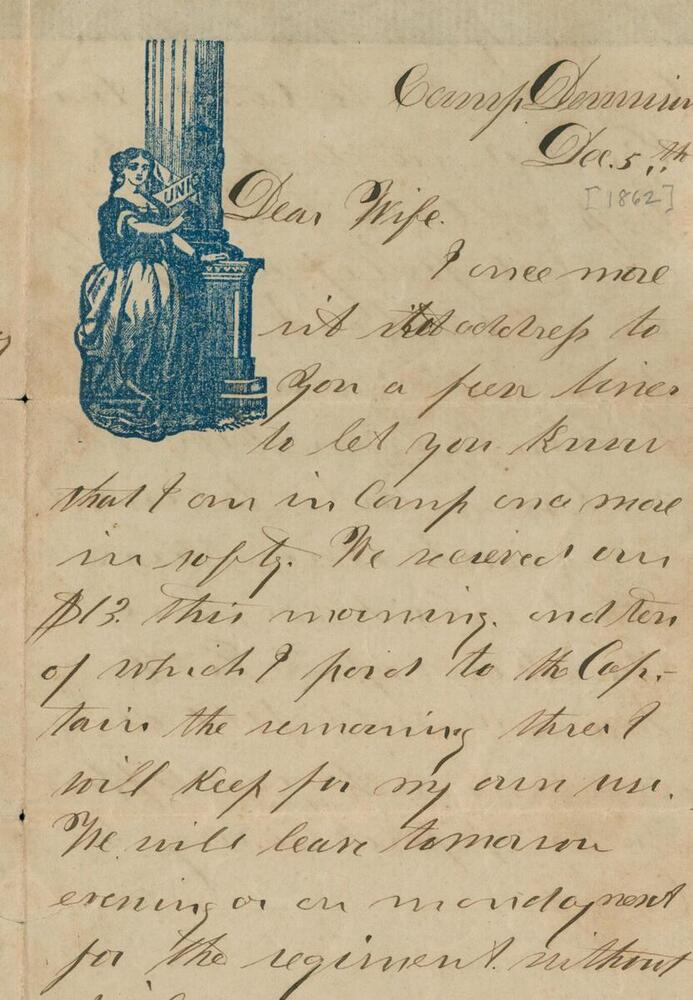 Camp Dennison
Dec. 5th
[1862]
UNIO
Dear Wife.
I once more
sit address to
you a few lines
to let you know
that I am in Camp once more
in safty. We recieved our
$13. this morning. and ten
of which I paid to the Cap-
tain the remaining three I
will keep for my own use.
We will leave tomorrow
evening or on monday next
for the regiment. without